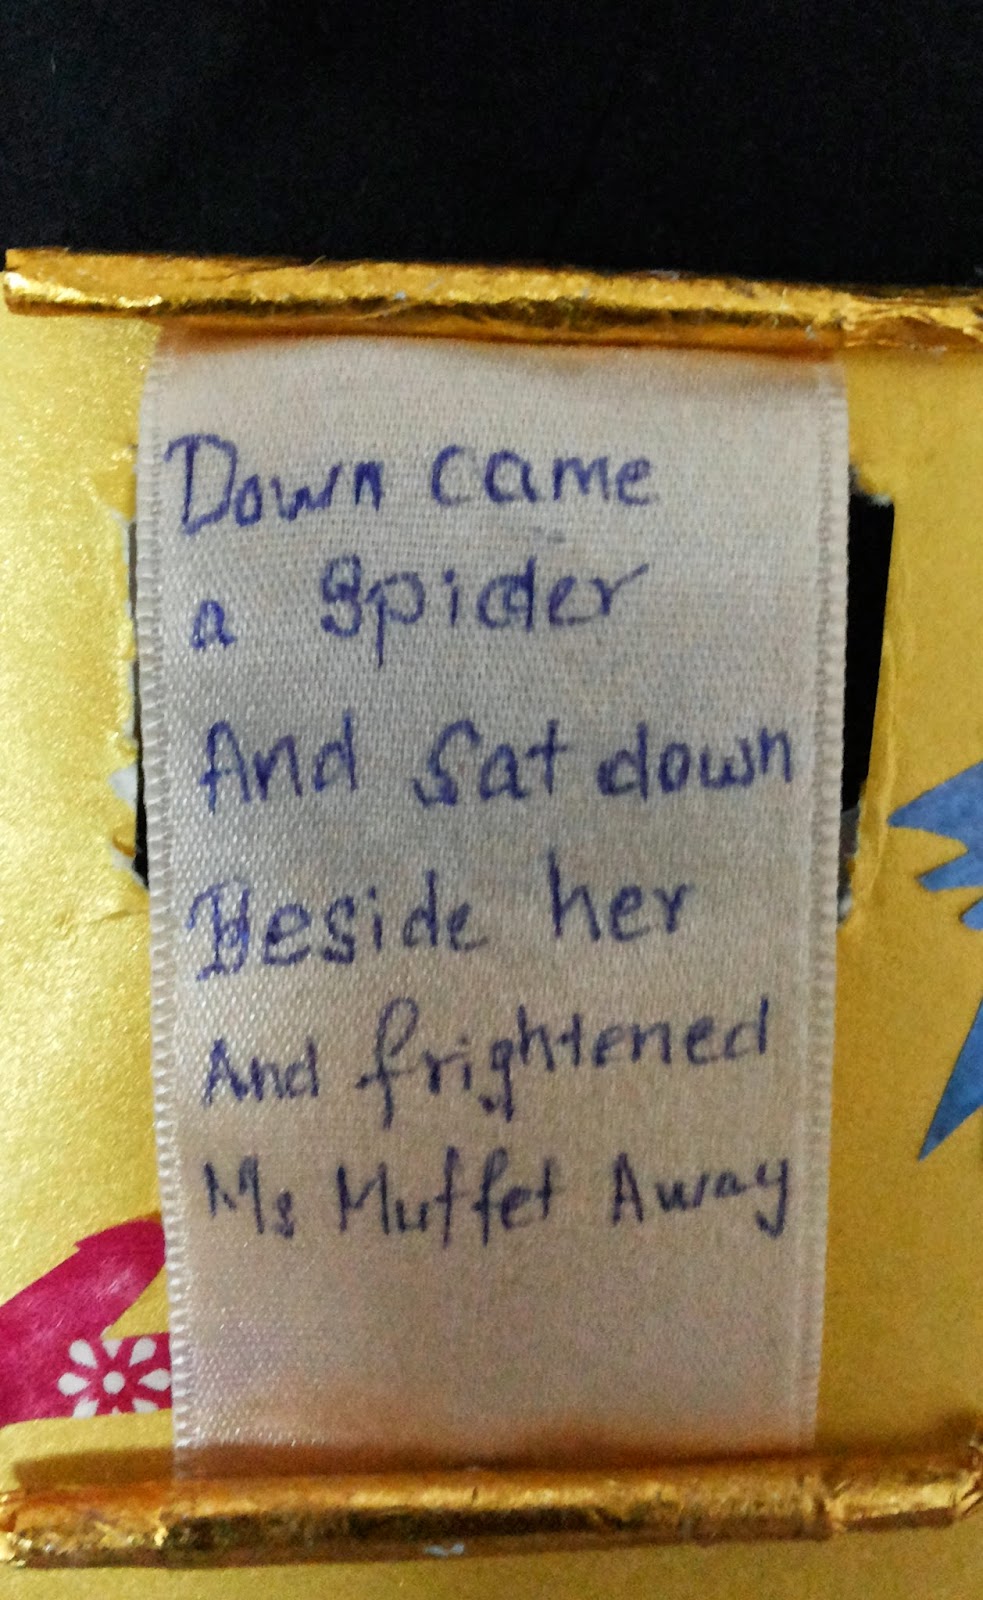 Down came
a Spider
And Sat down
Beside her
And frightened
Ms Muffet Away